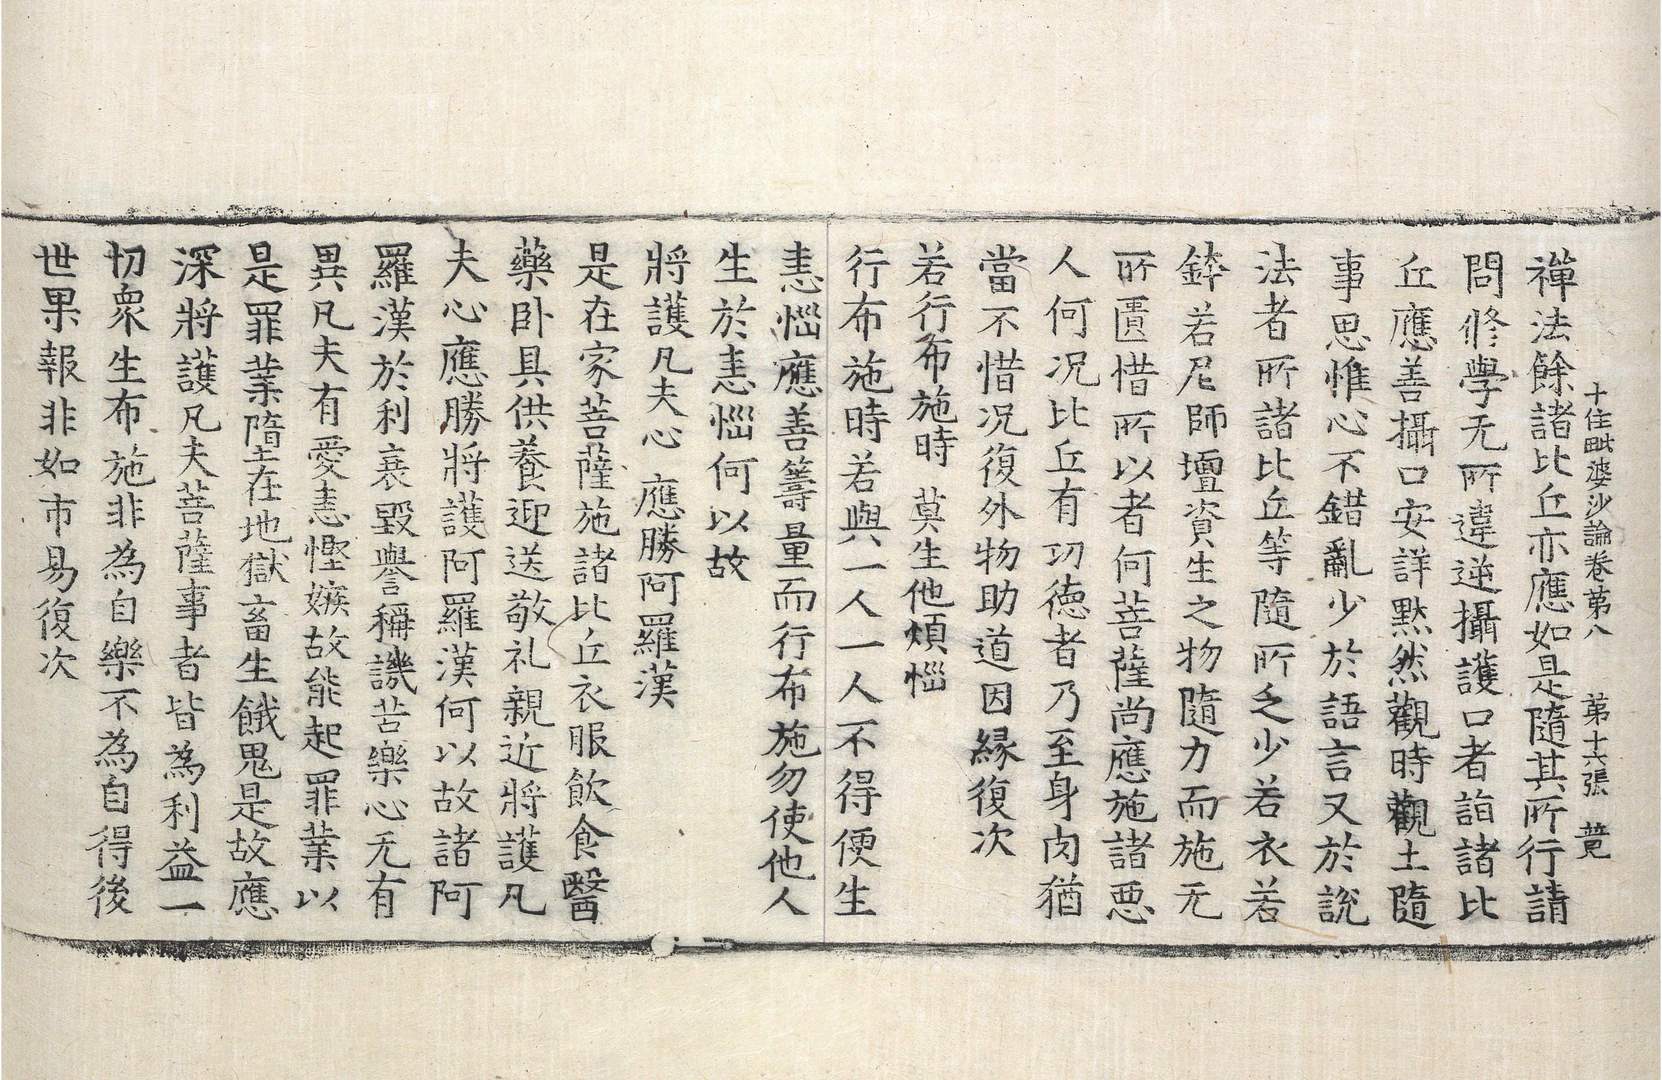 十住毗婆沙論卷第八 第十六張 競
禪法餘諸比丘亦應如是隨其所行請
問修學无所違逆攝護口者詣諸比
丘應善攝口安詳默然觀時觀土隨
事思惟心不錯亂少於語言又於說
法者所諸比丘等隨所乏少若衣若
鉢若尼師壇資生之物隨力而施无
所匱惜所以者何菩薩尚應施諸惡
人何況比丘有功德者乃至身肉猶
當不惜況復外物助道因緣復次
若行布施時 莫生他煩惱
行布施時若與一人一人不得便生
恚惱應善籌量而行布施勿使他人
生於恚惱何以故
將護凡夫心 應勝阿羅漢
是在家菩薩施諸比丘衣服飲食醫
藥卧具供養迎送敬礼親近將護凡
夫心應勝將護阿羅漢何以故諸阿
羅漢於利衰毀譽稱譏苦樂心无有
異凡夫有愛恚慳嫉故能起罪業以
是罪業墮在地獄畜生餓鬼是故應
深將護凡夫菩薩事者皆為利益一
切衆生布施非為自樂不為自得後
世果報非如市易復次